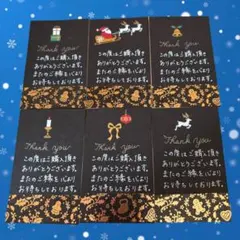 Thank you
この度はご購入頂き
ありがとうございます。
またのご縁を心より
お待ちしております。
Thank you
この度はご購入頂き
ありがとうございます。
またのご縁を心より
お待ちしております。
Thank you
この度はご購入頂き
ありがとうございます。
またのご縁を心より
お待ちしております。
Thank you
この度はご購入頂き
ありがとうございます。
またのご縁を心より
お待ちしております。
Thank you
この度はご購入頂き
ありがとうございます。
またのご縁を心より
お待ちしております。
Thank you
この度はご購入頂き
ありがとうございます。
またのご縁を心より
お待ちしております。